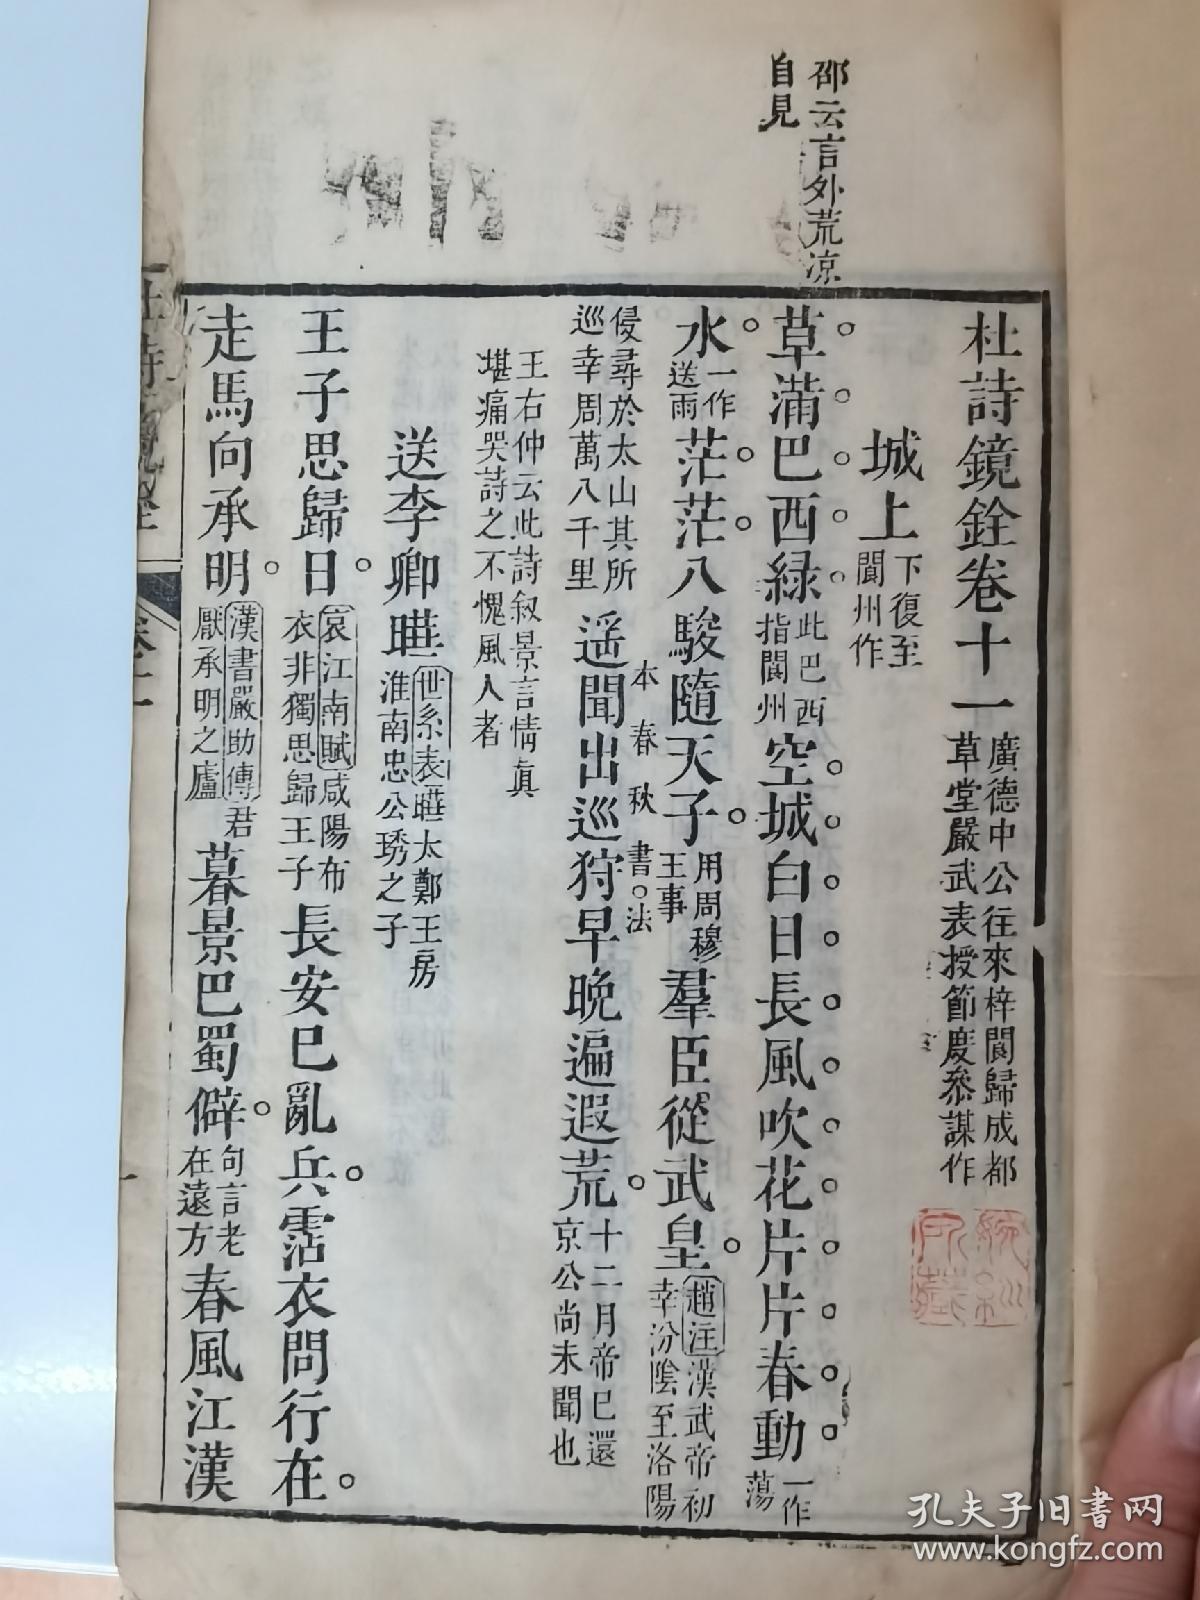 邵云言外荒涼
自見
杜詩鏡銓卷十一
廣德中公往來梓閬歸成都
草堂嚴武表授節度叅謀作
城上
下復至
閬州作
草滿巴西綠
此巴西
指閬州
空城白日長風吹花片片春動
一作
蕩
水
一作
送雨
茫茫八駿隨天子
用周穆
王事
羣臣從武皇
趙注漢武帝初
幸汾陰至洛陽
侵尋於太山其所
巡幸周萬八千里
遥聞出巡狩早晚遍遐荒
本春秋書法
十二月帝已還
京公尚未聞也
王右仲云此詩叙景言情眞
堪痛哭詩之不愧風人者
送李卿曄
世系表曄太鄭王房
淮南忠公琇之子
王子思歸日
哀江南賦咸陽布
衣非獨思歸王子
長安已亂兵霑衣問行在
走馬向承明
漢書嚴助傳君
厭承明之廬
暮景巴蜀僻
句言老
在遠方
春風江漢
杜詩鏡銓
一
孔夫子旧書网
www.kongfz.com